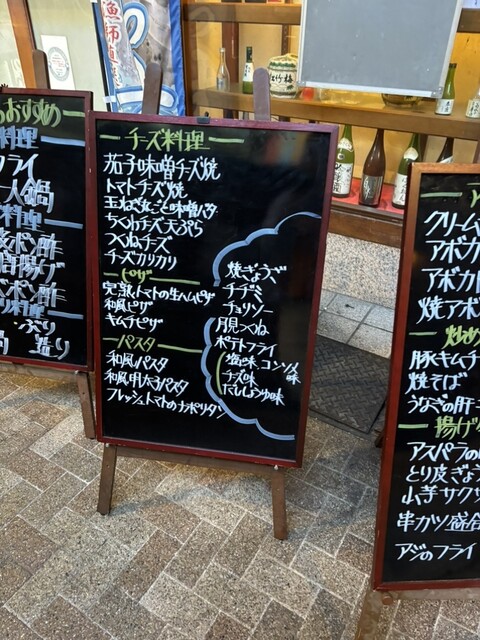 漁師直送
松竹梅
おすすめ
料理
フライ
一人鍋
料理
ポン酢
唐揚げ
ポン酢
料理
造り
チーズ料理
茄子味噌チーズ焼
トマトチーズ焼
玉ねぎ丸ごと味噌バター
ちくわチーズ天ぷら
つくねチーズ
チーズカリカリ
ピザ
完熟トマトの生ハムピザ
和風ピザ
キムチピザ
パスタ
和風パスタ
和風明太子パスタ
フレッシュトマトのナポリタン
焼ぎょうざ
チヂミ
チョリソー
月見つくね
ポテトフライ
塩味 コンソメ味
チーズ味
だししょうゆ味
ア
クリーム
アボカ
アボカド
焼アボ
炒め
豚キムチ
焼そば
うなぎの肝キ
揚げ
アスパラの
とり皮ぎょう
山芋サク
串カツ盛合
アジのフライ